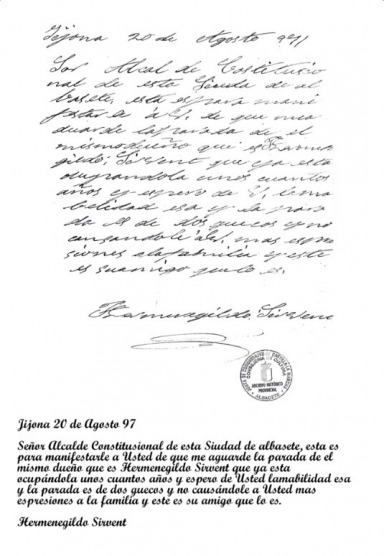 Jijona 20 de Agosto 97
Sor Alcal de Costitusio
nal de esta Siuda de al
basete, esta es para mani
festar a Ud. de que me a
guarde la parada de el
mismo dueño que es Herme
gildo Sirvent que ya esta
ocupandola unos cuantos
años y espero de U. lama
belidad esa y la para
da es de dos guecos y no
causandole a Ud. mas espre
siones a la familia y este
es su amigo que lo es.
Hermenegildo Sirvent
ARCHIVO HISTÓRICO
PROVINCIAL
ALBACETE
Jijona 20 de Agosto 97
Señor Alcalde Constitusional de esta Siudad de albasete, esta es
para manifestarle a Usted de que me aguarde la parada de el
mismo dueño que es Hermenegildo Sirvent que ya esta
ocupándola unos cuantos años y espero de Usted lamabilidad esa
y la parada es de dos guecos y no causándole a Usted mas
espresiones a la familia y este es su amigo que lo es.
Hermenegildo Sirvent